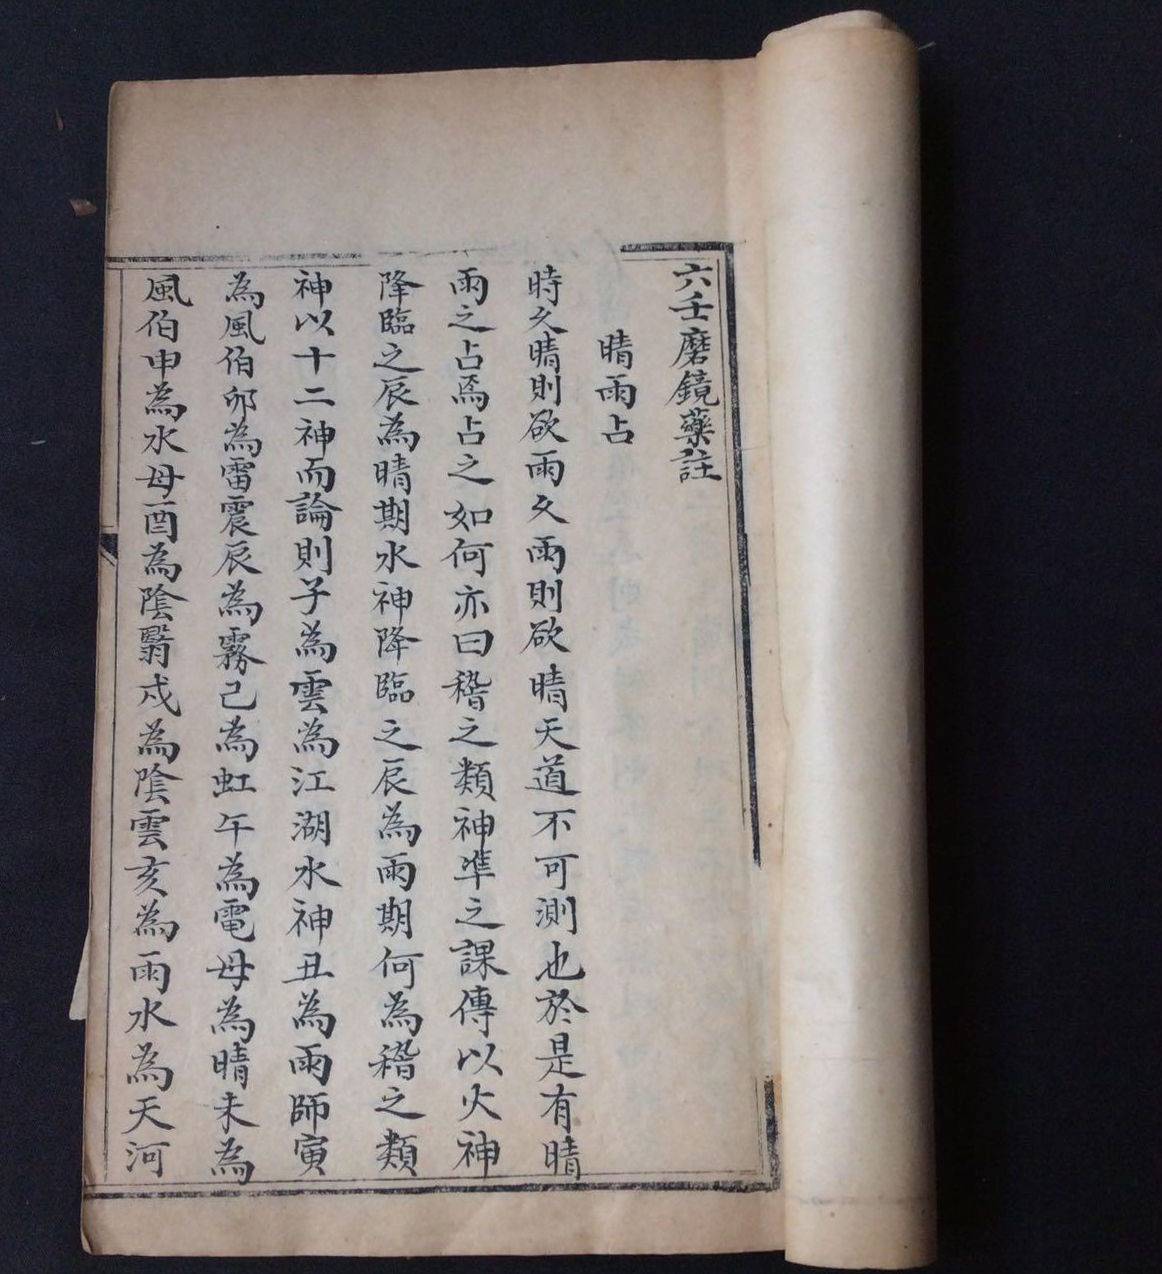 六壬磨鏡藥註
晴雨占
時久晴則欲雨久雨則欲晴天道不可測也於是有晴
雨之占焉占之如何亦曰稽之類神準之課傳以火神
降臨之辰為晴期水神降臨之辰為雨期何為稽之類
神以十二神而論則子為雲為江湖水神丑為雨師寅
為風伯卯為雷震辰為霧己為虹午為電母為晴未為
風伯申為水母酉為陰翳戌為陰雲亥為雨水為天河